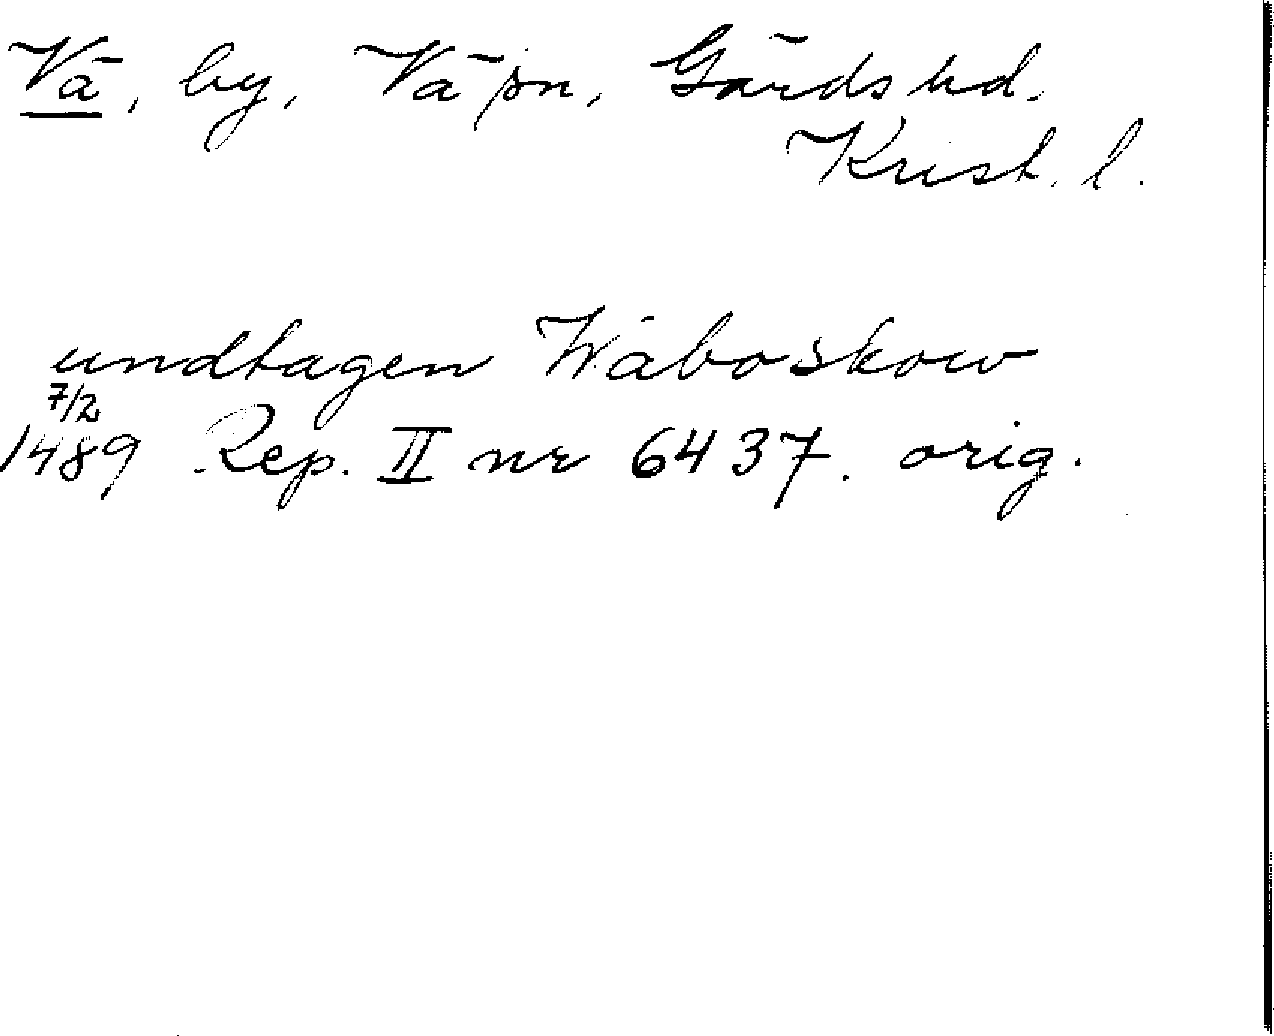 Vä, by, Vä sn, Gärds hd.
Krist. l.
undtagen Wäboskow
7/2
1489 Rep. II nr 6437. orig.